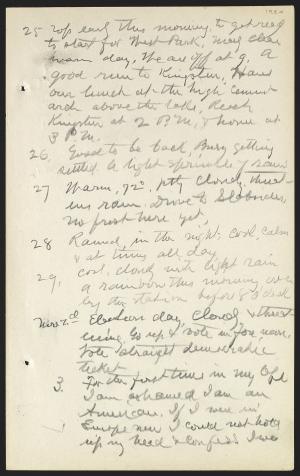 1920
25 Up early this morning to get ready
to start for West Park, mild clear
warm day, We are off at 9. A
good run to Kingston, Have
our lunch at the high cement
arch above the lake, Reach
Kingston at 2 P.M. & home at
3 P.M.
26, Good to be back, Busy getting
settled. A light sprinkle of rain
27 Warm, 72°, ptly cloudy, threat-
ens rain. Drove to Slabsides,
no frost here yet,
28 Rained, in the night; cool, calm
& at times all day
29, cool, cloudy with light rain
a rainbow this morning over
by the station before 8 o'clock
Nov 2d Election day, cloudy & threat-
ening, Go up & vote in forenoon,
Vote straight democratic
ticket
3. For the first time in my life
I am ashamed I am an
American. If I were in
Europe now I could not hold
up my head & confess I was